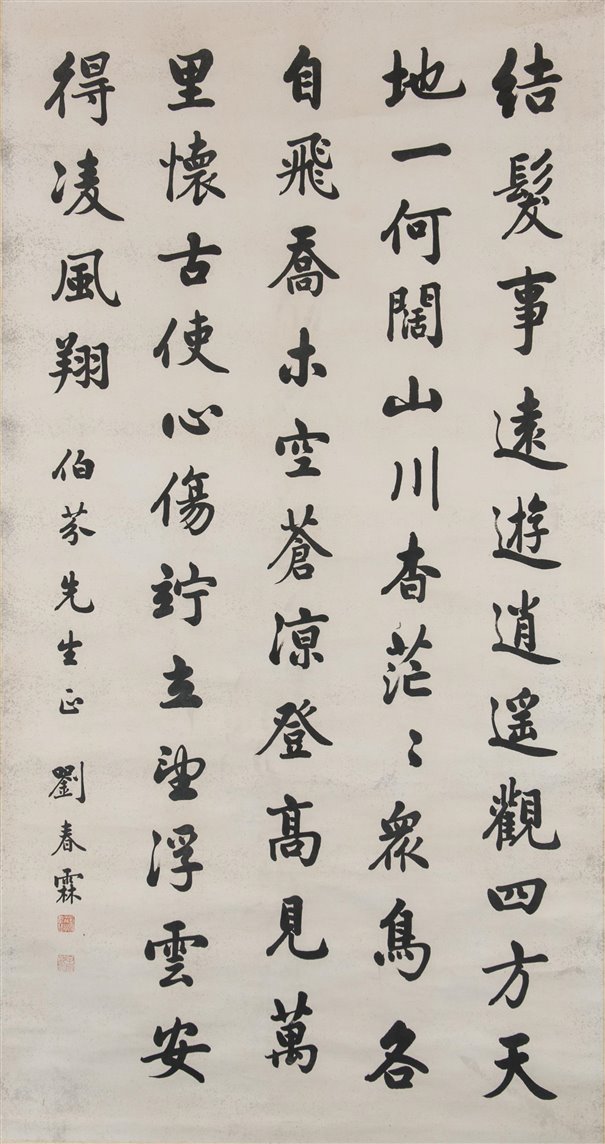 結髮事遠遊逍遥觀四方天
地一何闊山川杳茫〻衆鳥各
自飛喬木空蒼涼登高見萬
里懷古使心傷竚立望浮雲安
得凌風翔 伯芬先生正 劉春霖